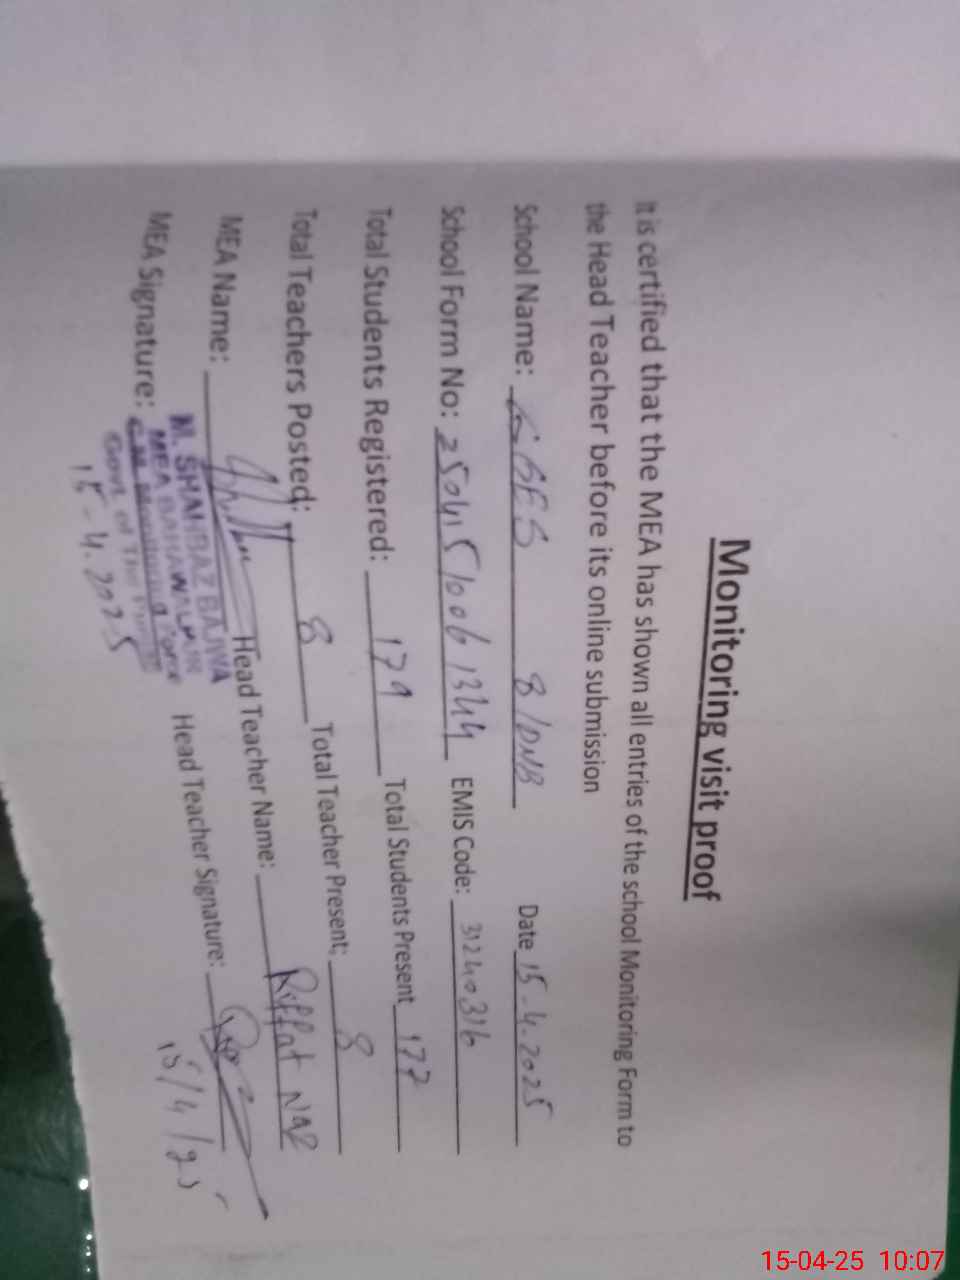 Monitoring visit proof
It is certified that the MEA has shown all entries of the school Monitoring Form to
the Head Teacher before its online submission
School Name: GGES 8/DNB Date 15-4-2025
School Form No: 25041510061344 EMIS Code: 31240316
Total Students Registered: 179 Total Students Present 177
Total Teachers Posted: 8 Total Teacher Present; 8
MEA Name: Head Teacher Name: Riffat Naz
MEA Signature: Head Teacher Signature:
M. SHAHBAZ BAJWA
MEA BAHAWALPUR
C.M Monitoring Force
Govt. of The Punjab
15-4-2025
15/4/25
15-04-25 10:07